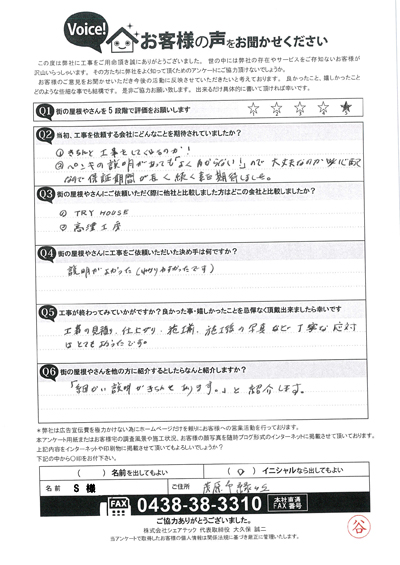 Voice!
お客様の声をお聞かせください
この度は弊社に工事をご用命頂き誠にありがとうございました。 世の中には弊社の存在やサービスをご存知ないお客様が
沢山いらっしゃいます。 その方たちに弊社をよく知って頂くためのアンケートにご協力頂けないでしょうか。
お客様のご意見をお聞かせいただき今後の活動に反映させていただきたいと考えております。 良かったこと、嬉しかったこと
どのような些細な事でも結構です。 是非ご協力お願い致します。 出来るだけ具体的に書いて頂ければ幸いです。
Q1 街の屋根やさんを5段階で評価をお願いします ☆ ☆ ☆ ☆ ★
Q2 当初、工事を依頼する会社にどんなことを期待されていましたか?
① きちんと工事をしてくれるのか!
② ペンキの説明があっても「よく分からない!」ので 大丈夫なのか
なので保証期間が長く続く事を期待しました。
Q3 街の屋根やさんにご依頼いただく際に他社と比較しました方はどこの会社と比較したか?
① TRY HOUSE
②
Q4 街の屋根やさんに工事をご依頼いただいた決め手は何ですか?
説明がよかった(わかりやすかったです)
Q5 工事が終わってみていかがですか?良かった事・嬉しかったことを忌憚なく頂戴出来ましたら幸いです
工事の見積り、仕上がり、施工前、施工後の写真など、丁寧な応対
はとても
Q6 街の屋根やさんを他の方に紹介するとしたらなんと紹介しますか?
「細かい説明がきちんとあります。」と紹介します。
＊弊社は広告宣伝費を極力かけない為にホームページだけを頼りにお客様への営業活動を行っております。
本アンケート用紙またはお客様宅の調査風景や施工状況、お客様の顔写真を随時ブログ形式のインターネットに掲載させて頂いております。
上記内容をインターネットや印刷物に掲載させて頂いてもよろしいでしょうか?
下記の中から〇印をお付下さい。
( ) 名前を出してもよい ( 〇 ) イニシャルなら出してもよい
名 前 S 様 ご住所 茂原市緑ヶ丘
FAX 0438-38-3310 本社直通 FAX番号
ご協力ありがとうございました。
株式会社シェアテック 代表取締役 大久保 誠二
当アンケートで取得したお客様の個人情報は関係法規に基づき厳正に管理いたします。
谷